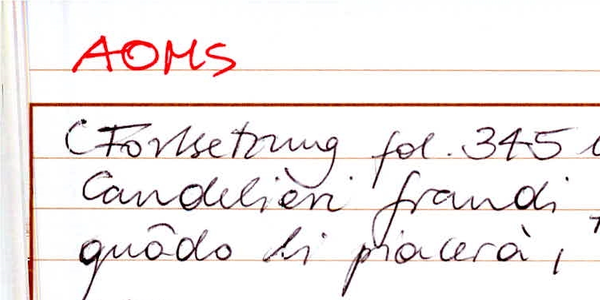 AOMS
(Fortsetzung fol. 345
Candelieri grandi
quãdo li piacerà,